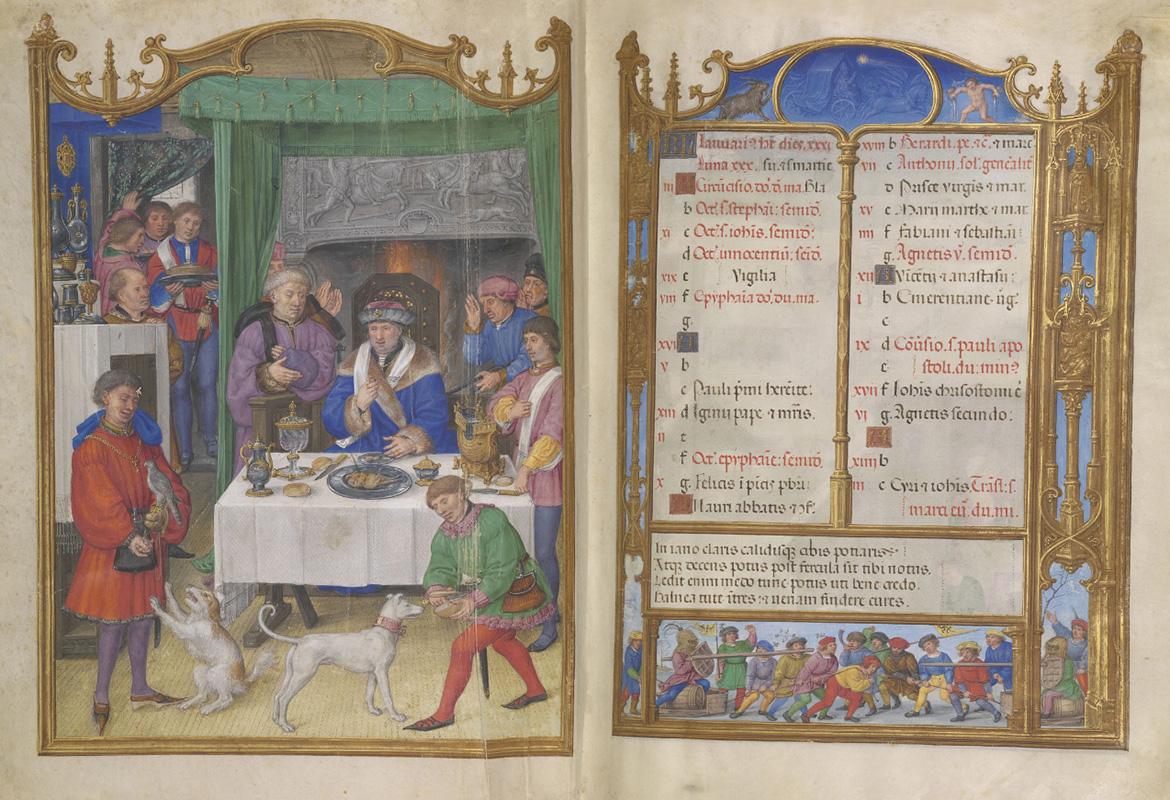 Januarius hēt dies. xxxi
Luna xxx.
iii A Circūcisio. dō. d. ma.
b Oct. s. stephani: semid.
xi c Oct. s. iohis. semid:
d Oct. innocentiū: seīd.
xix e Vigilia
viii f Epyphaīa dō. du. ma.
g.
xvi A
v b
c Pauli pimi heréite:
xiii d Igini pape et m̄ris.
ii e
f Oct. epyphaīe: semid.
x g. Felicis ī pīcis pbrī:
A Mauri abbatis et ɔf.
xviii b Berardi. pe. et c. et mar.
vii c Anthonii.
d Prisce virgīs et mar.
xv e Marii marthe et mar
iiii f fabiani et sebastiāi
g. Agnetis v. semid.
xii A Vicētii et anastasii:
i b Emerentiane. v̄g.
c
ix d Cōusio. s. pauli apo
e stoli. du. min?
xvii f Iohis crisostomi
vi g. Agnetis secundo:
A
xiiii b
iii c Cyri et iohis. Trāsl. s.
marci eū. du. mi.
In iano claris calidisq; cibis potiaris:
Atq; decens potus post fercula sit tibi notus.
Ledit enim medo tunc potus uti bene credo.
Balnea tute ītres: et uenam findere cures.